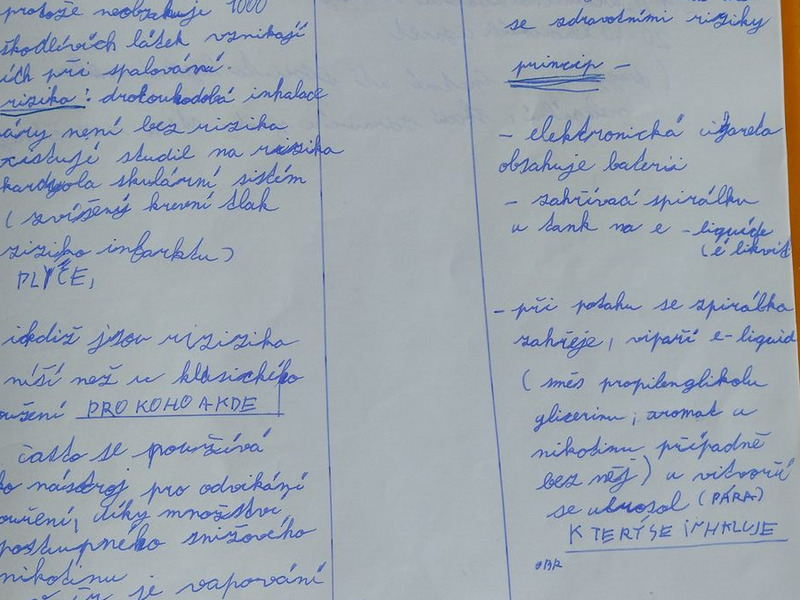 protože neobsahuje 1000
škodlivích látek vznikají
ích při spalování.
rizika: dlouhodobá inhalace
páry není bez rizika
existují studií na rizika
kardyola skulární sistém
(zvíšený krevní tlak
riziko infarktu)
PLYCE,
ikdiž jsou rizizika
niší než u klasického
ouření PRO KOHO A KDE
často se používá
ko nástroj pro odvikání
ouření, díky množstvi
postupného snižového
nikotinu
je vapování
se zdravotními riziky
princip -
- elektronická cigareta
obsahuje baterii
- zahřívací spirálku
u tank na e-liquide
(é likvit
- při potahu se spirálka
zahřeje, vipaří e-liquid
(směs propilenglikolu
glicerinu, aromat u
nikotinu případně
bez něj) u vitvoří
se uerosol (PÁRA)
KTERÝ SE INHALUJE